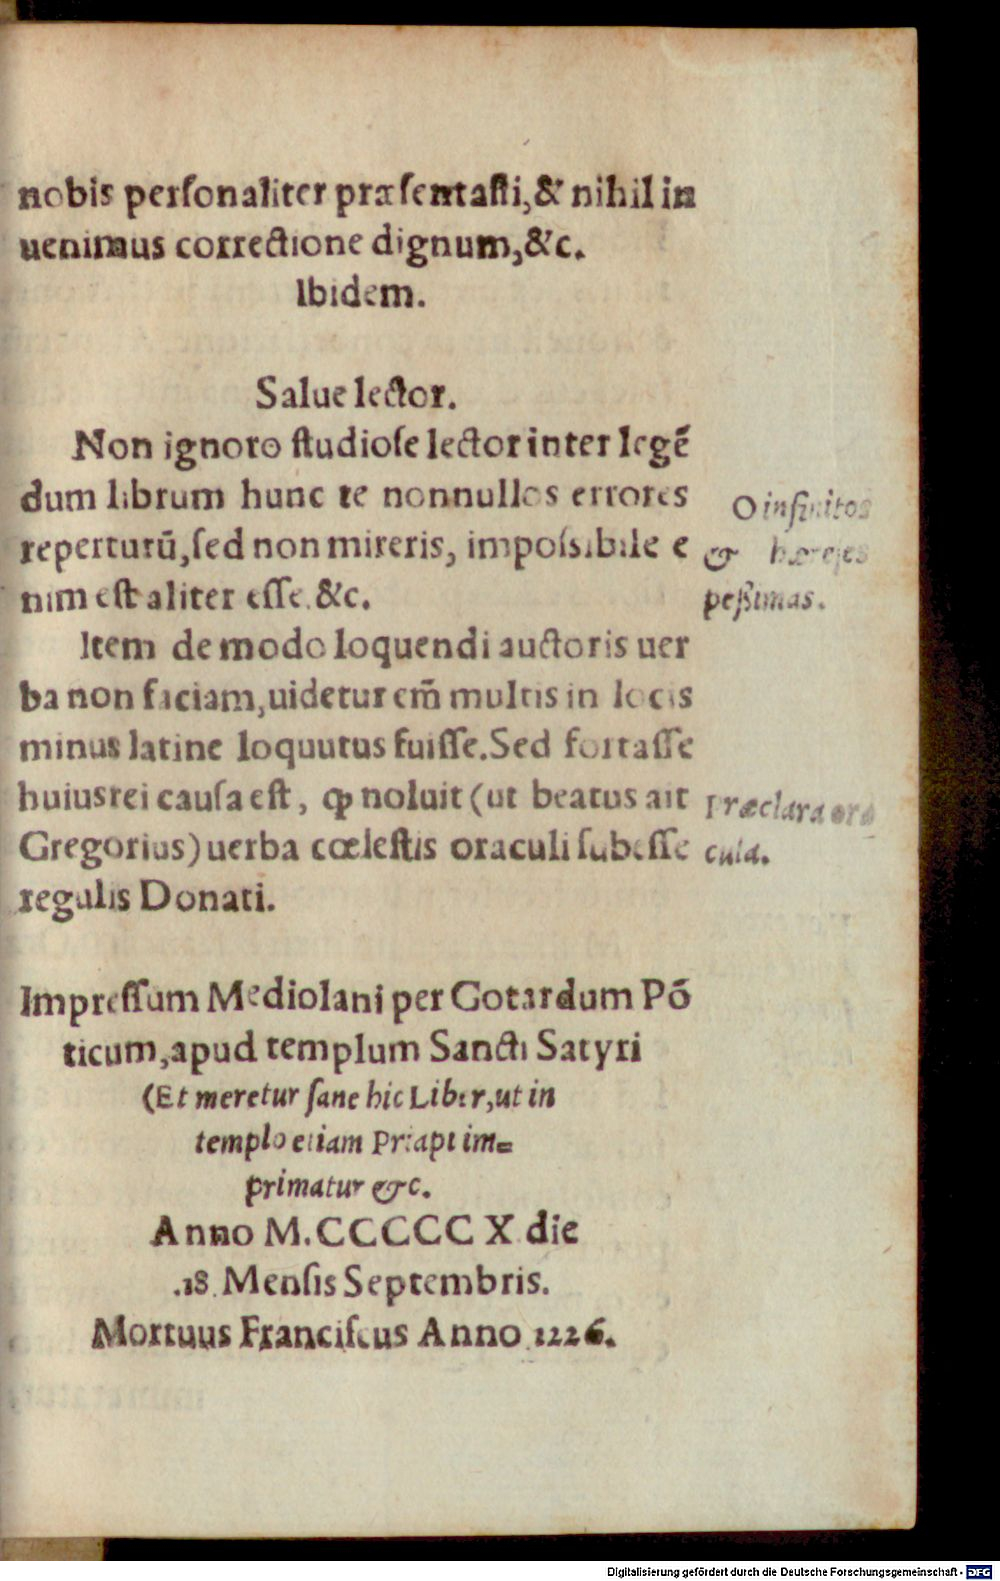 nobis perſonaliter præſentaſti,& nihil in
uenimus correctione dignum,&c.
Ibidem.
Salue lector.
Non ignoro ſtudioſe lector inter legē
dum librum hunc te nonnullos errores
reperturū,ſed non mireris, impoſsibile e
nim eſt aliter eſſe.&c.
O infinitos
& hæreſes
peßimas.
Item de modo loquendi auctoris uer
ba non faciam,uidetur em̄ multis in locis
minus latine loquutus fuiſſe.Sed fortaſſe
huius rei cauſa eſt, ꝙ noluit (ut beatus ait
Gregorius) uerba cœleſtis oraculi ſubeſſe
regulis Donati.
Præclara ora
cula.
Impreſſum Mediolani per Gotardum Pō
ticum,apud templum Sancti Satyri
(Et meretur ſane hic Liber,ut in
templo etiam Priapi im=
primatur &c.
Anno M.CCCCC X die
.18. Menſis Septembris.
Mortuus Franciſcus Anno 1226.
Digitalisierung gefördert durch die Deutsche Forschungsgemeinschaft - DFG